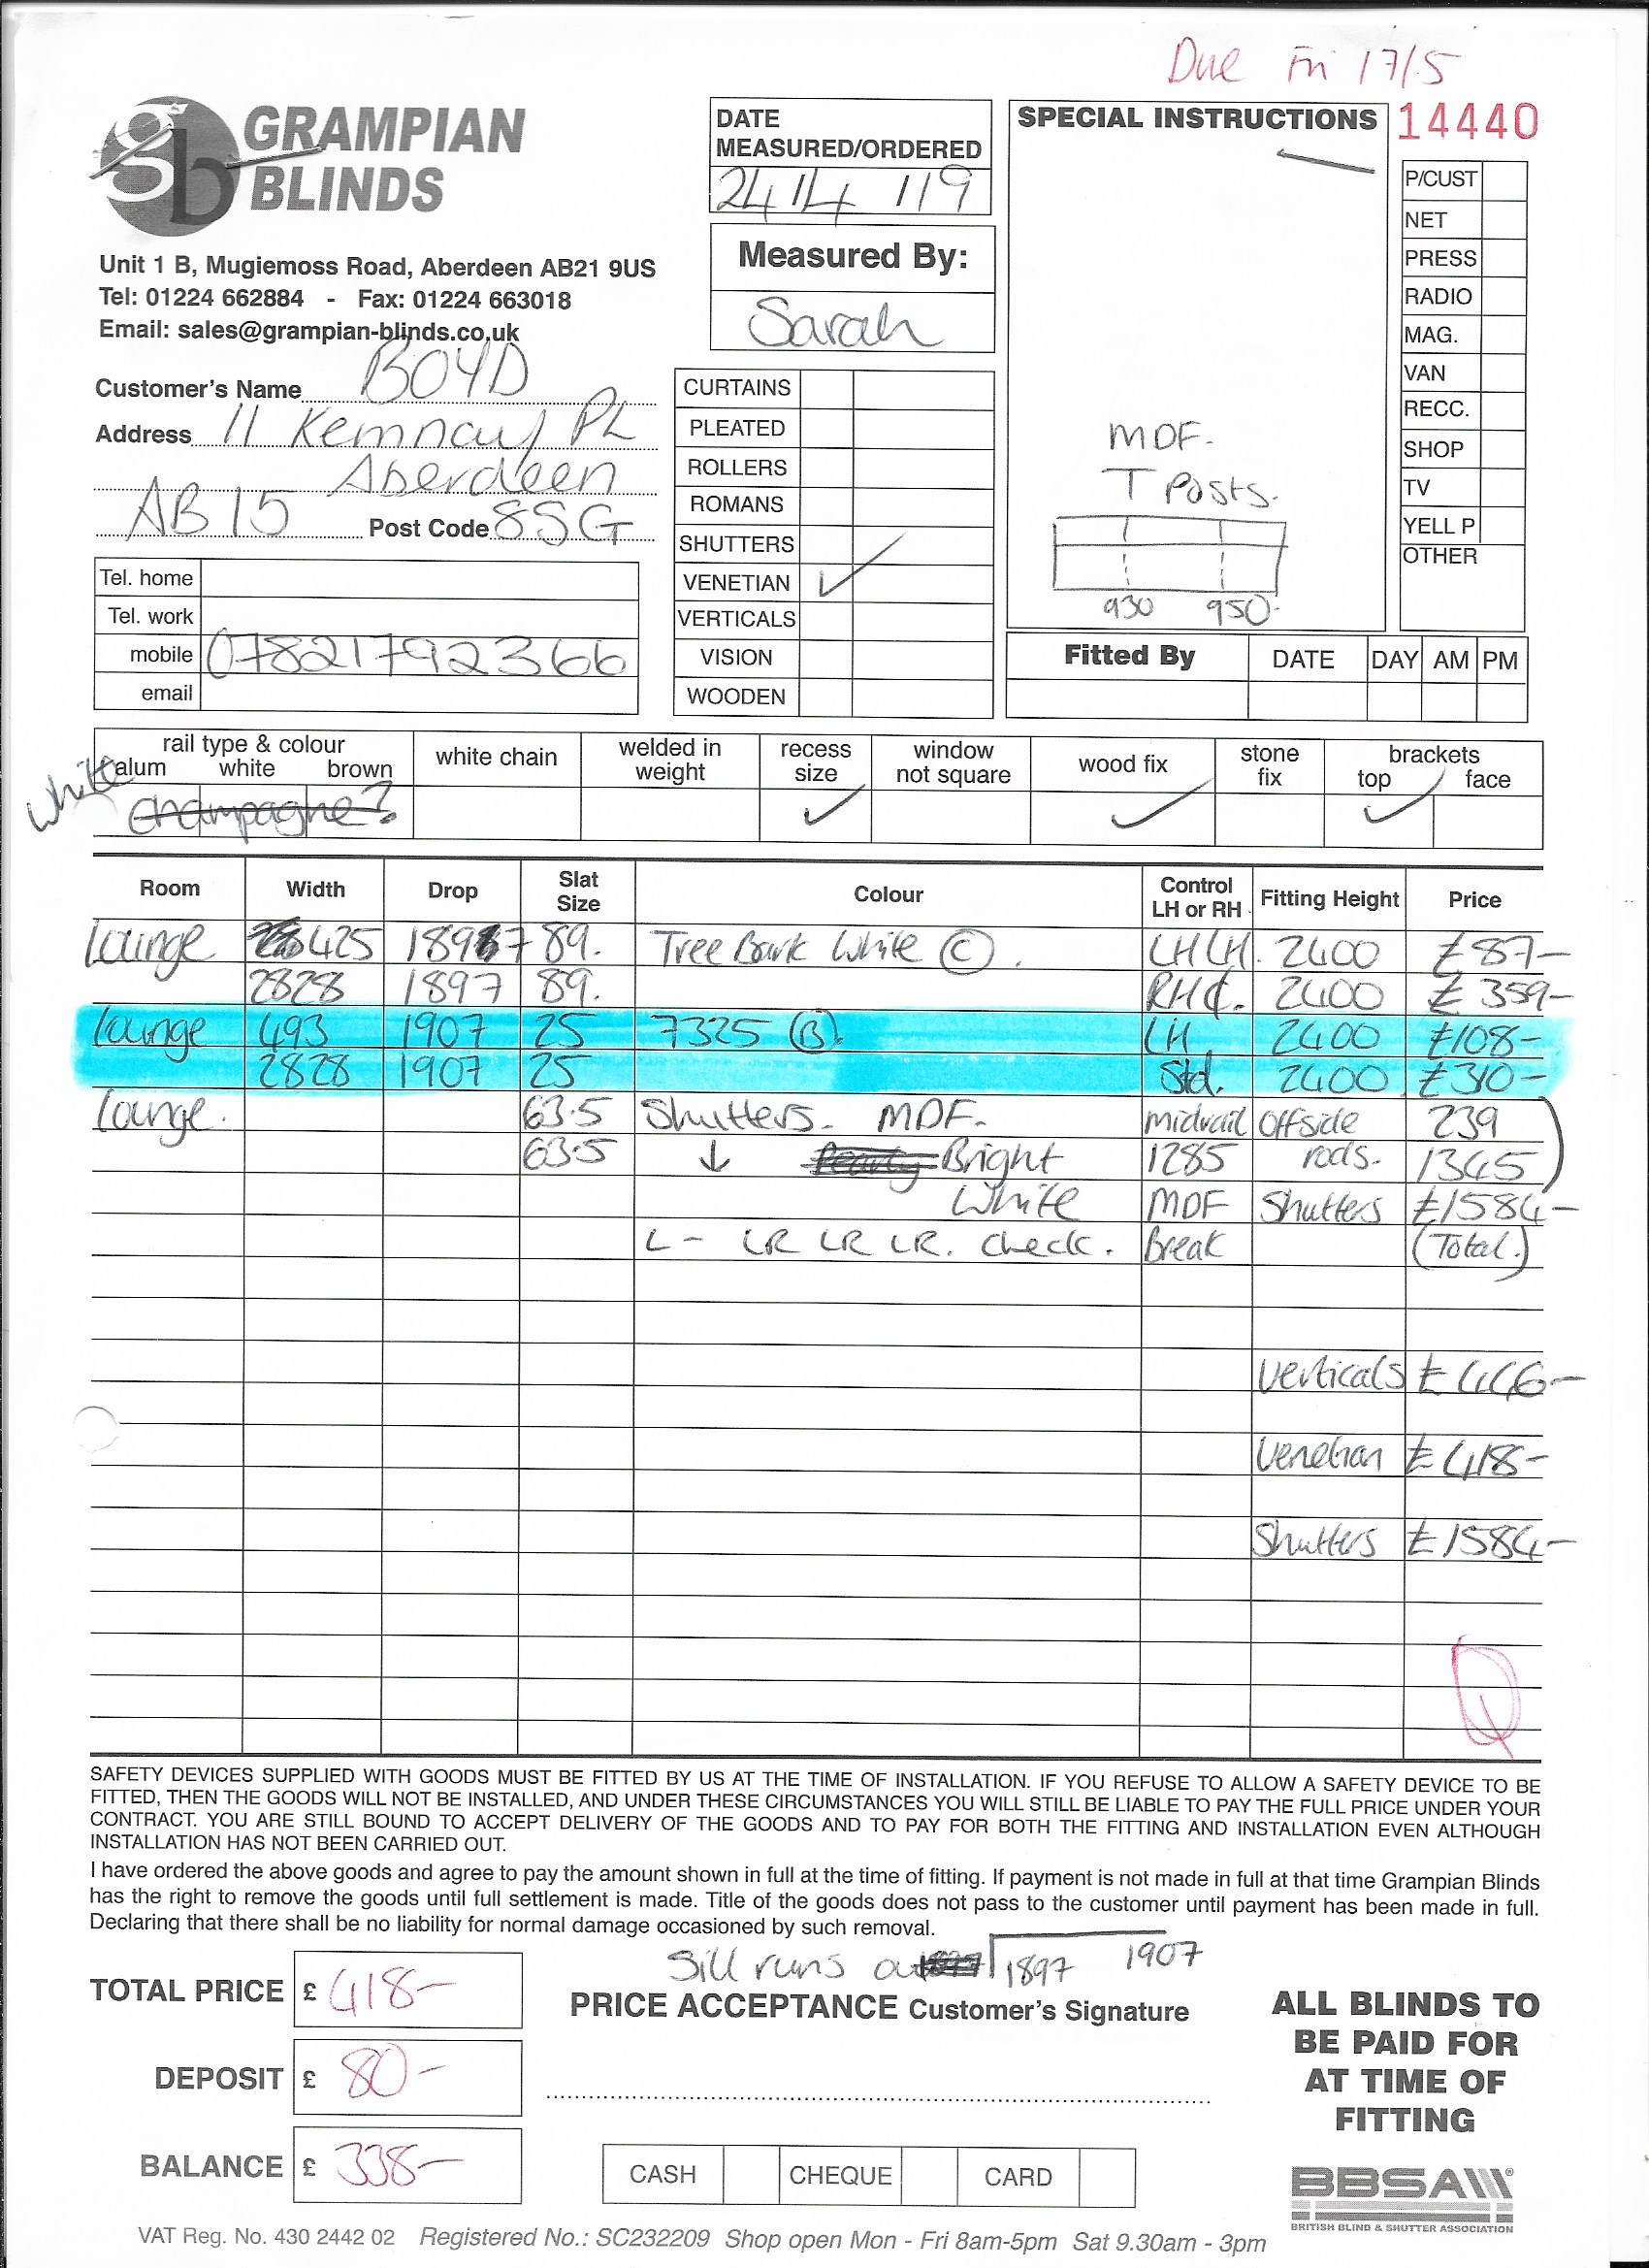 Due Fri 17/5
GRAMPIAN
BLINDS
Unit 1 B, Mugiemoss Road, Aberdeen AB21 9US
Tel: 01224 662884 - Fax: 01224 663018
Email: sales@grampian-blinds.co.uk
Customer's Name BOYD
Address 11 Kemnay PL
Aberdeen
AB15 Post Code 8SG
Tel. home
Tel. work
mobile 07821792366
email
DATE
MEASURED/ORDERED
24/4/19
Measured By:
Sarah
CURTAINS
PLEATED
ROLLERS
ROMANS
SHUTTERS
VENETIAN ✓
VERTICALS
VISION
WOODEN
SPECIAL INSTRUCTIONS
MDF.
T Posts.
930 950
14440
P/CUST
NET
PRESS
RADIO
MAG.
VAN
RECC.
SHOP
TV
YELL P
OTHER
Fitted By DATE DAY AM PM
rail type & colour white chain welded in weight recess size window not square wood fix stone fix brackets
alum white brown top face
White champagne? ✓ ✓ ✓
Room Width Drop Slat Size Colour Control LH or RH Fitting Height Price
Lounge 425 1897 89. Tree Bark White (C). LH LH. 2400 £87-
2828 1897 89. RH₵. 2400 £359-
Lounge 493 1907 25 7325 (B). LH 2400 £108-
2828 1907 25 Std. 2400 £310-
Lounge. 63.5 Shutters. MDF. Midrail Offside 239
63.5 ↓ Bright 1285 rods. 1345
White MDF Shutters £1584-
L- LR LR LR. check. Break (Total.)
Verticals £446-
Venetian £418-
Shutters £1584-
SAFETY DEVICES SUPPLIED WITH GOODS MUST BE FITTED BY US AT THE TIME OF INSTALLATION. IF YOU REFUSE TO ALLOW A SAFETY DEVICE TO BE
FITTED, THEN THE GOODS WILL NOT BE INSTALLED, AND UNDER THESE CIRCUMSTANCES YOU WILL STILL BE LIABLE TO PAY THE FULL PRICE UNDER YOUR
CONTRACT. YOU ARE STILL BOUND TO ACCEPT DELIVERY OF THE GOODS AND TO PAY FOR BOTH THE FITTING AND INSTALLATION EVEN ALTHOUGH
INSTALLATION HAS NOT BEEN CARRIED OUT.
I have ordered the above goods and agree to pay the amount shown in full at the time of fitting. If payment is not made in full at that time Grampian Blinds
has the right to remove the goods until full settlement is made. Title of the goods does not pass to the customer until payment has been made in full.
Declaring that there shall be no liability for normal damage occasioned by such removal.
Sill runs 1897 1907
TOTAL PRICE £ 418-
PRICE ACCEPTANCE Customer's Signature
DEPOSIT £ 80-
BALANCE £ 338-
CASH CHEQUE CARD
ALL BLINDS TO
BE PAID FOR
AT TIME OF
FITTING
BBSA
BRITISH BLIND & SHUTTER ASSOCIATION
VAT Reg. No. 430 2442 02 Registered No.: SC232209 Shop open Mon - Fri 8am-5pm Sat 9.30am - 3pm